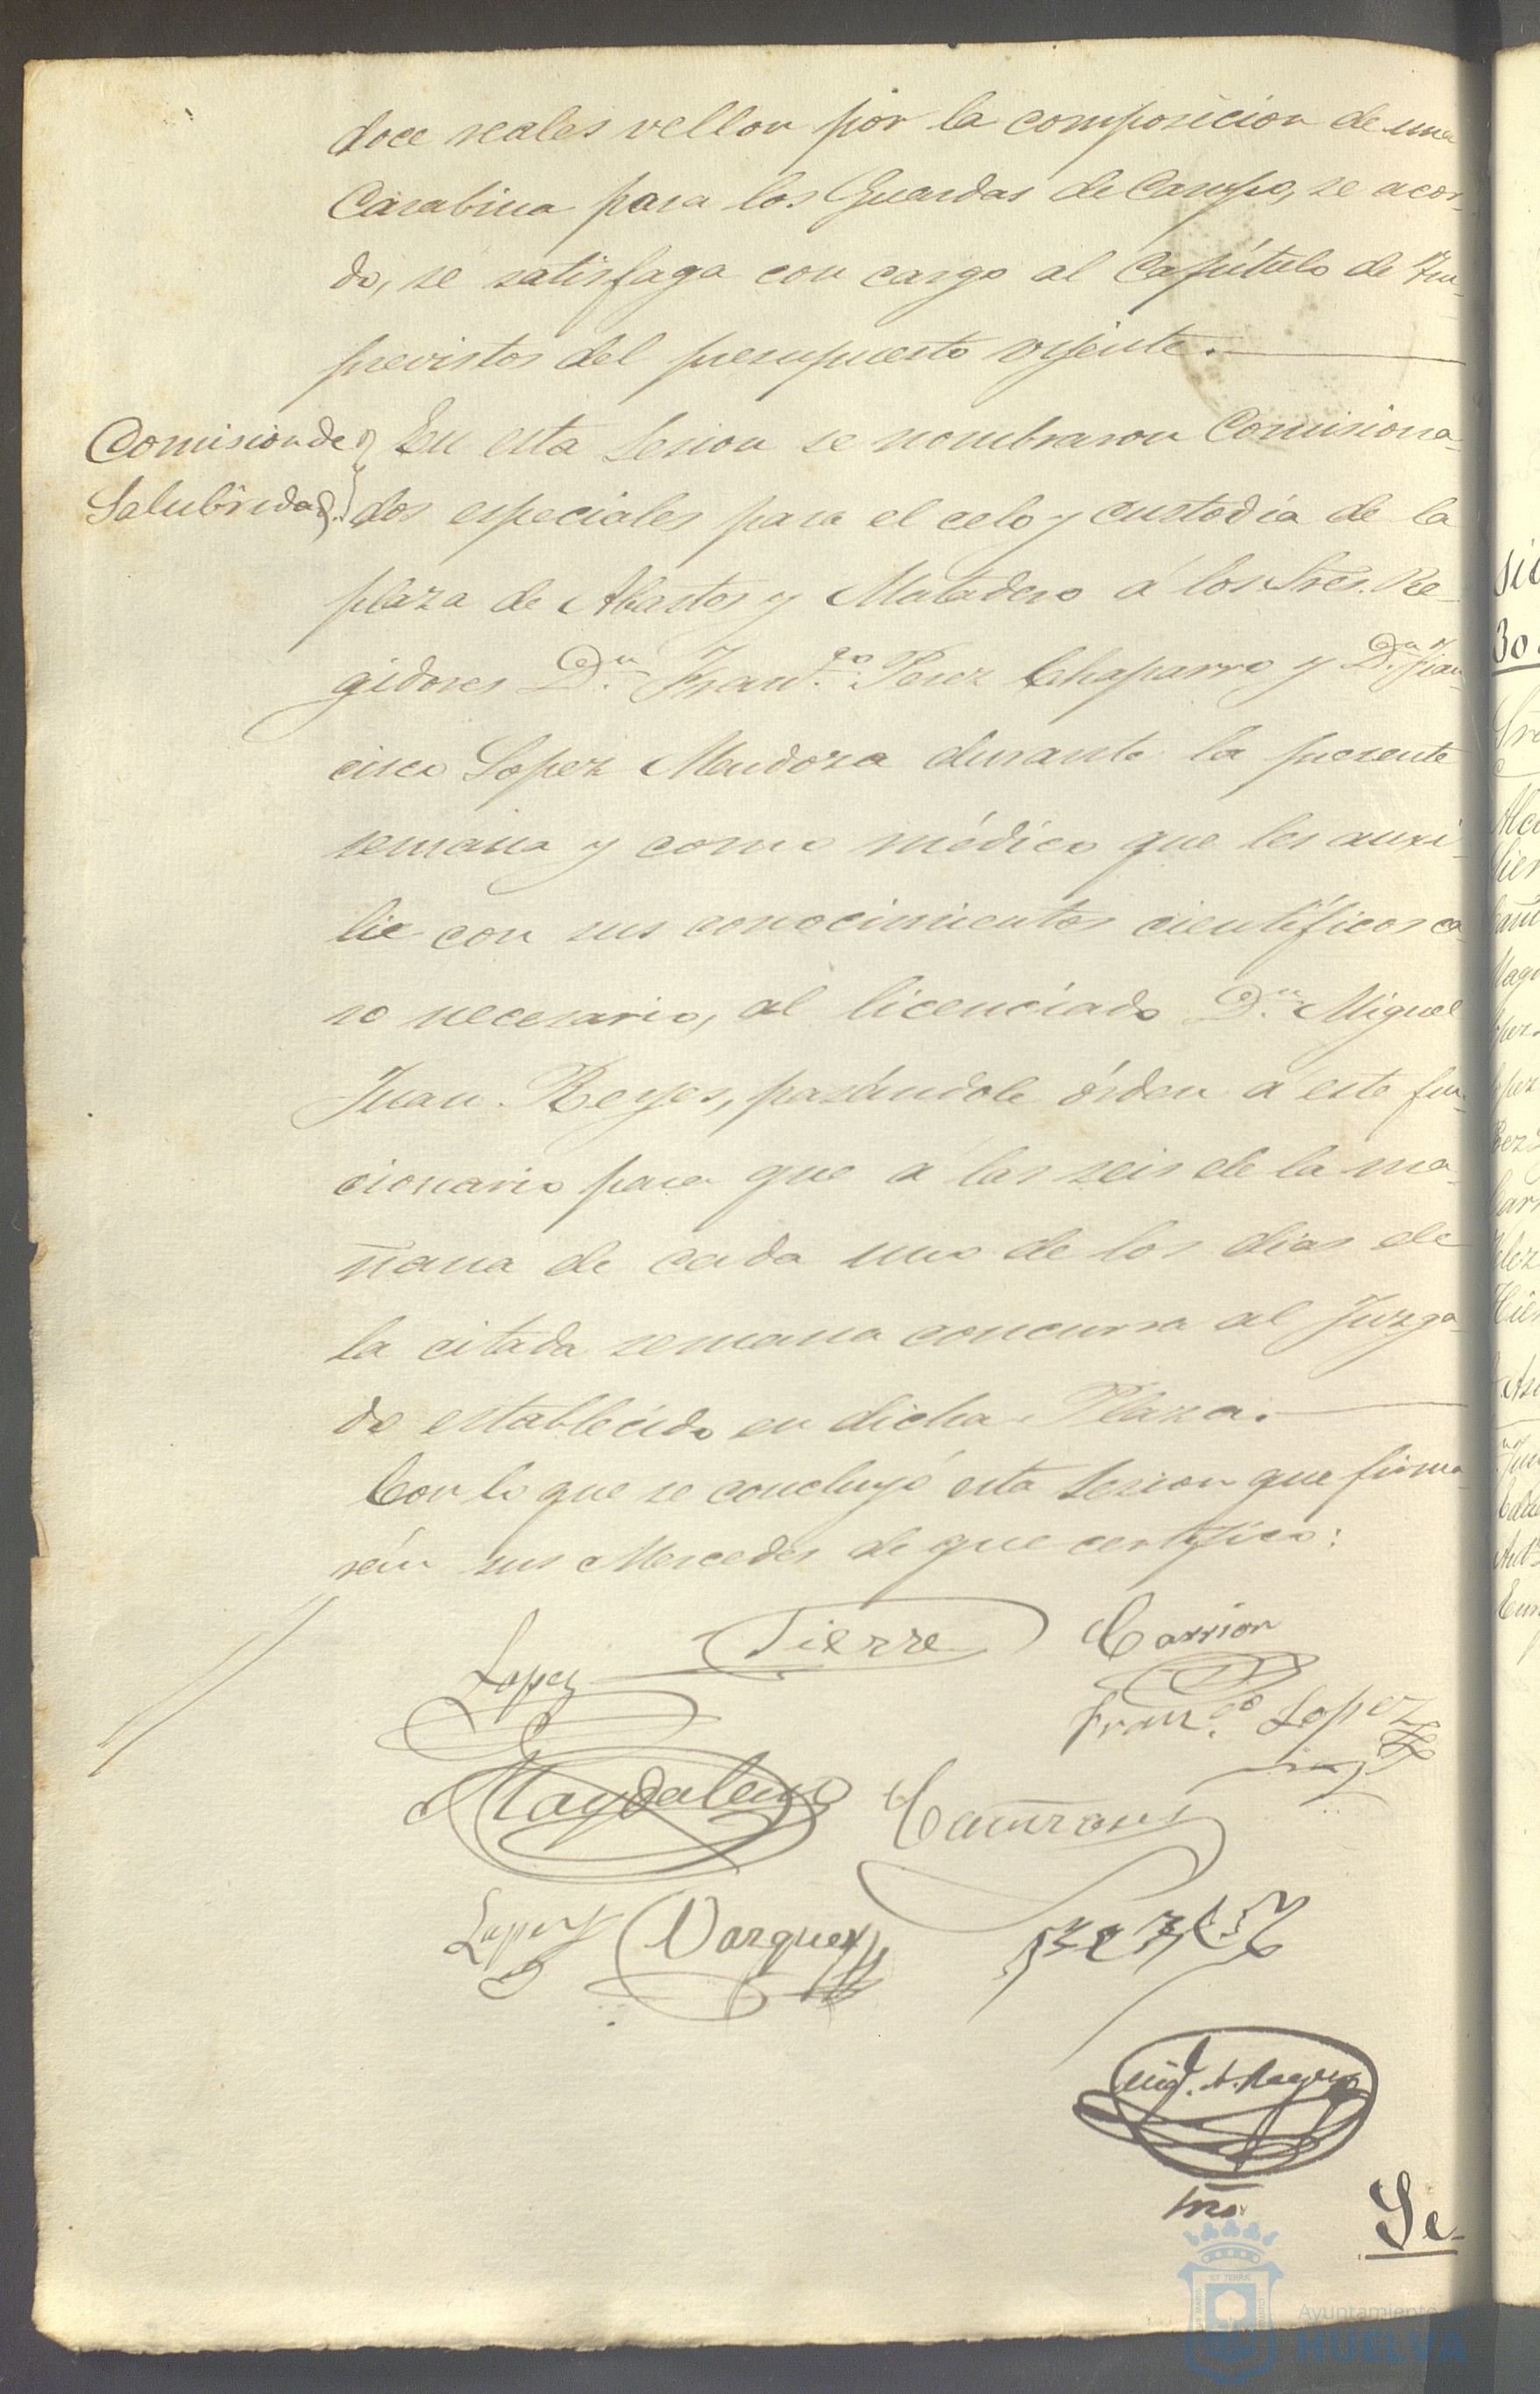 doce reales vellon por la composicion de una
Carabina para los Guardas de Campo, se acor-
dó, se satisfaga con cargo al Capítulo de Im-
previstos del presupuesto vijente.
Comision de
Salubridad.
En esta Sesion se nombraron Comisiona-
dos especiales para el celo y custodia de la
plaza de Abastos y Matadero á los Sres. Re-
gidores Dn. Franco. Perez Chaparro y Dn. Fran-
cisco Lopez Mendoza durante la presente
semana y como médico que les auxi-
lie con sus conocimientos científicos ca-
so necesario, al licenciado Dn. Miguel
Juan Reyes, pasándole órden a este fun-
cionario para que a las seis de la ma-
ñana de cada uno de los dias de
la citada semana concurra al Juzga-
do establecido en dicha Plaza.
Con lo que se concluyó esta Sesion que firma-
rán sus Mercedes de que certifico:
Lopez
Tierra
Carrion
Franco. Lopez
Magdaleno
Lopez
Vazquez
Srio.
Se-
Ayuntamiento
HUELVA